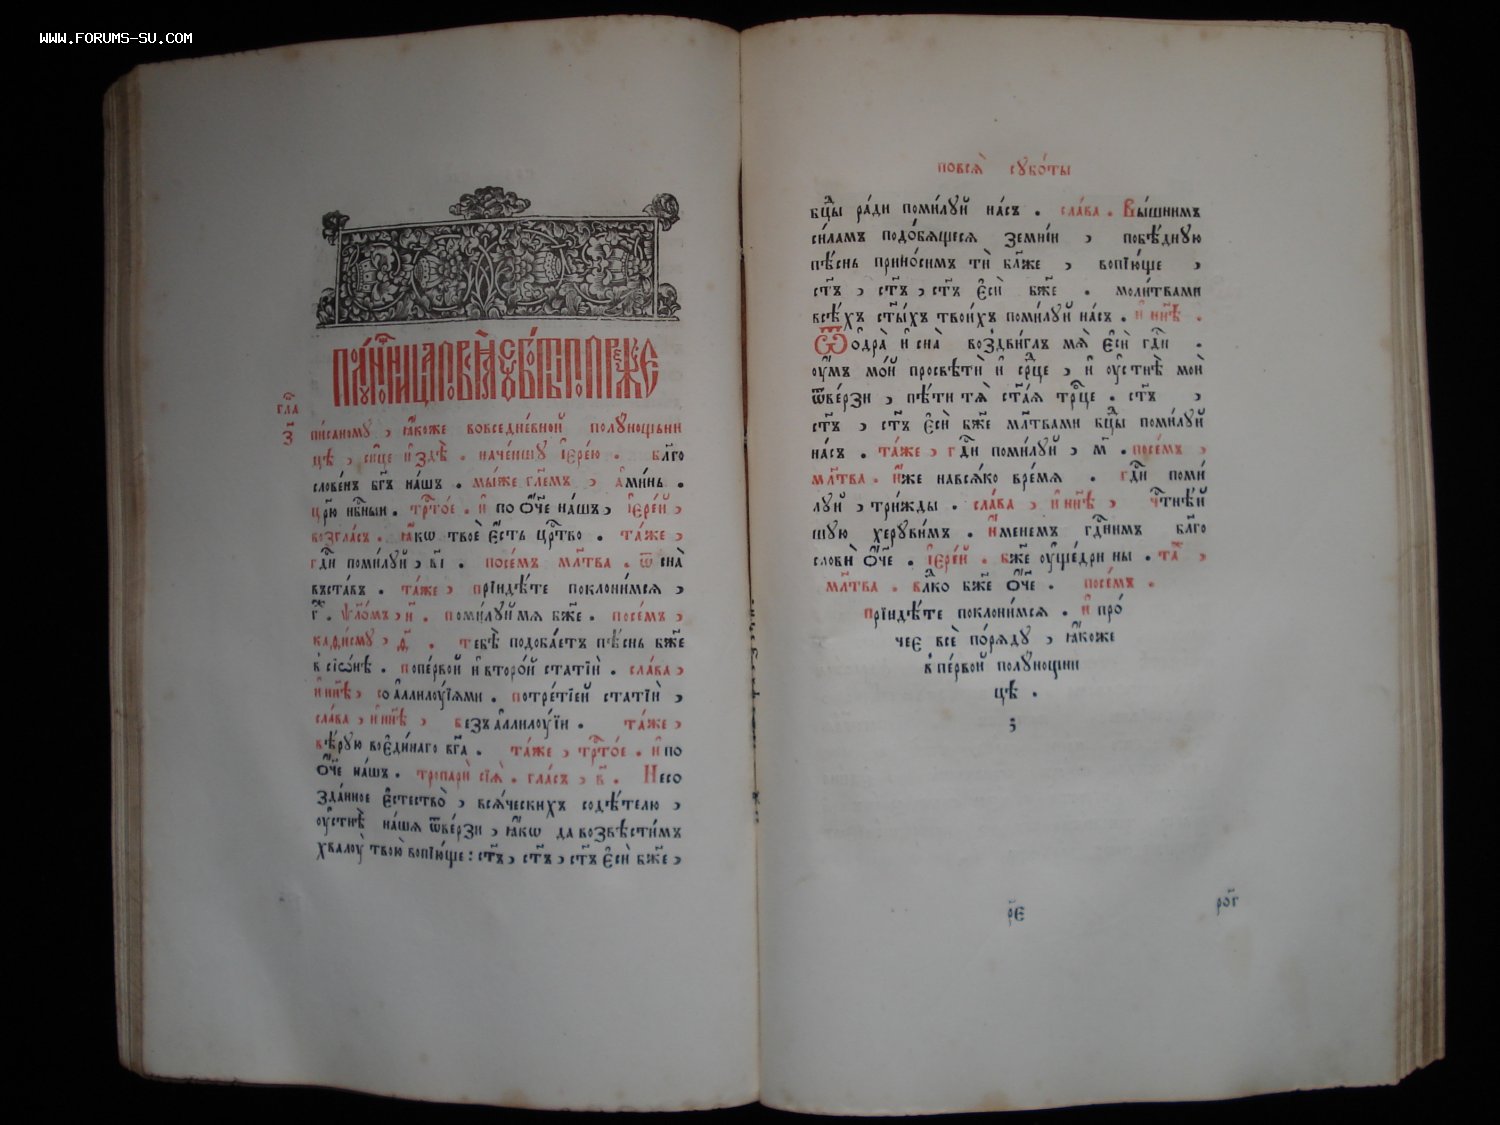 WWW.FORUMS-SU.COM
гла̑
з҃
пи́саному, ꙗ҆́коже вовседне́вной полꙋ́нощьни
цѣ, си́це и҆здѣ̀. наче́ншꙋ і҆ере́ю. бл҃го
слове́нъ бг҃ъ на́шъ. мы́же гл҃емъ, а҆ми́нь.
цр҃ю нб҃ный. трⷭ҇то́е. и҆ по ѻ҆́ч҃е на́шъ, і҆ере́й,
во́згласъ. ꙗ҆́кѡ твоѐ є҆́сть црⷭ҇тво. та́же,
гдⷭ҇и поми́лꙋй, в҃і. посе́мъ мл҃тва. ѿ сна̀
въста́въ. та́же, прїидѣ́те поклони́мсѧ,
г҃. ѱало́мъ, н҃. поми́лꙋй мѧ бж҃е. посе́мъ,
каѳи́смꙋ, д҃. тебѣ̀ подоба́етъ пѣ́снь бж҃е
в сїѡ́нѣ. попе́рвой и҆ второ́й статїѝ. сла́ва,
и҆ ны́нѣ, со а҆ллилꙋ́їѧми. потре́тїей статїѝ,
сла́ва, и҆ ны́нѣ, безъ а҆ллилꙋ́їи. та́же,
вѣ́рꙋю во є҆ди́наго бг҃а. та́же, трⷭ҇то́е. и҆ по
ѻ҆́ч҃е на́шъ. тропарѝ сїѧ̀. гла́съ, в҃. Несо
зда́нное є҆стество̀, всѧ́ческихъ содѣ́телю,
ᲂу҆стнѣ̀ на́ша ѿве́рзи, ꙗ҆́кѡ да возвѣсти́мъ
хвалꙋ̀ твою̀ вопїю́ще: ст҃ъ, ст҃ъ, ст҃ъ є҆сѝ бж҃е,
повсѧ̀ сꙋбо́ты
бц҃ы ра́ди поми́лꙋй на́съ. сла́ва. Вы́шнимъ
си́ламъ подо́бѧщесѧ земні́и, побѣ́днꙋю
пѣ́снь прино́симъ тѝ бл҃же, вопїю́ще,
ст҃ъ, ст҃ъ, ст҃ъ є҆сѝ бж҃е. моли́твами
всѣ́хъ ст҃ы́хъ твои́хъ поми́лꙋй на́съ. и҆ ны́нѣ.
Ѿ ѻ҆дра̀ и҆ сна̀ воздви́глъ мѧ̀ є҆сѝ гдⷭ҇и.
ᲂу҆́мъ мо́й просвѣтѝ и҆ срⷣце, и҆ ᲂу҆стнѣ̀ моѝ
ѿве́рзи, пѣ́ти тѧ̀ ст҃а́ѧ трⷪ҇це. ст҃ъ,
ст҃ъ, ст҃ъ є҆сѝ бж҃е мл҃твами бц҃ы поми́лꙋй
на́съ. та́же, гдⷭ҇и поми́лꙋй, м҃. посе́мъ,
мл҃тва. И҆́же навсѧ́ко вре́мѧ. гдⷭ҇и поми́
лꙋй, три́жды. сла́ва, и҆ ны́нѣ, чⷭ҇тнѣ́й
шꙋю херꙋви́мъ. И҆́менемъ гдⷭ҇нимъ бл҃го
словѝ ѻ҆́ч҃е. і҆ере́й. бж҃е ᲂу҆ще́дри ны. та́,
мл҃тва. влⷣко бж҃е ѻ҆́ч҃е. посе́мъ.
прїидѣ́те поклони́мсѧ. и҆ про́
чее всѐ по́рѧдꙋ, ꙗ҆́коже
в пе́рвой полꙋ́нощни
цѣ.
рое҃
рог҃